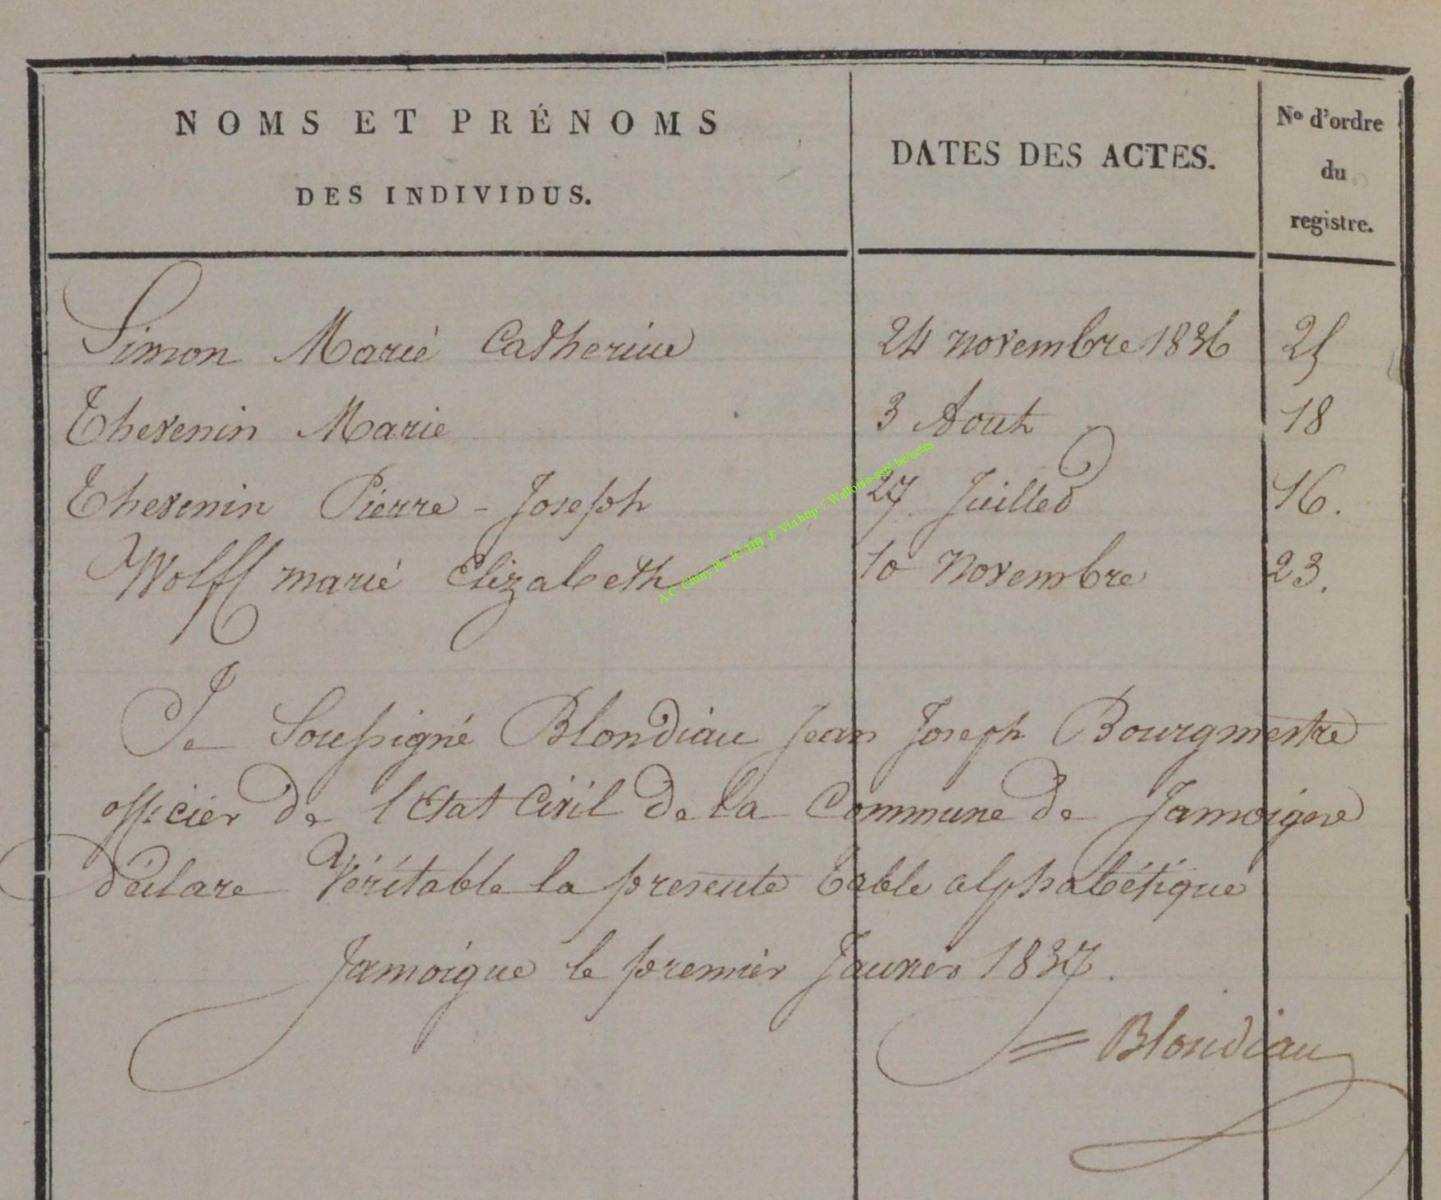 NOMS ET PRÉNOMS
DES INDIVIDUS.
DATES DES ACTES.
No d'ordre
du
registre.
Simon Marié Catherine 24 novembre 1836 25
Thevenin Marie 3 Aout 18
Thevenin Pierre - Joseph 27 Juillet 16.
Wolff marié Elizabeth 10 Novembre 23.
Je Soussigné Blondiau Jean Joseph Bourgmestre
officier de l'Etat Civil de la Commune de Jamoigne
déclare Véritable la presente table alphabétique
Jamoigne le premier Janvier 1837.
Blondiau